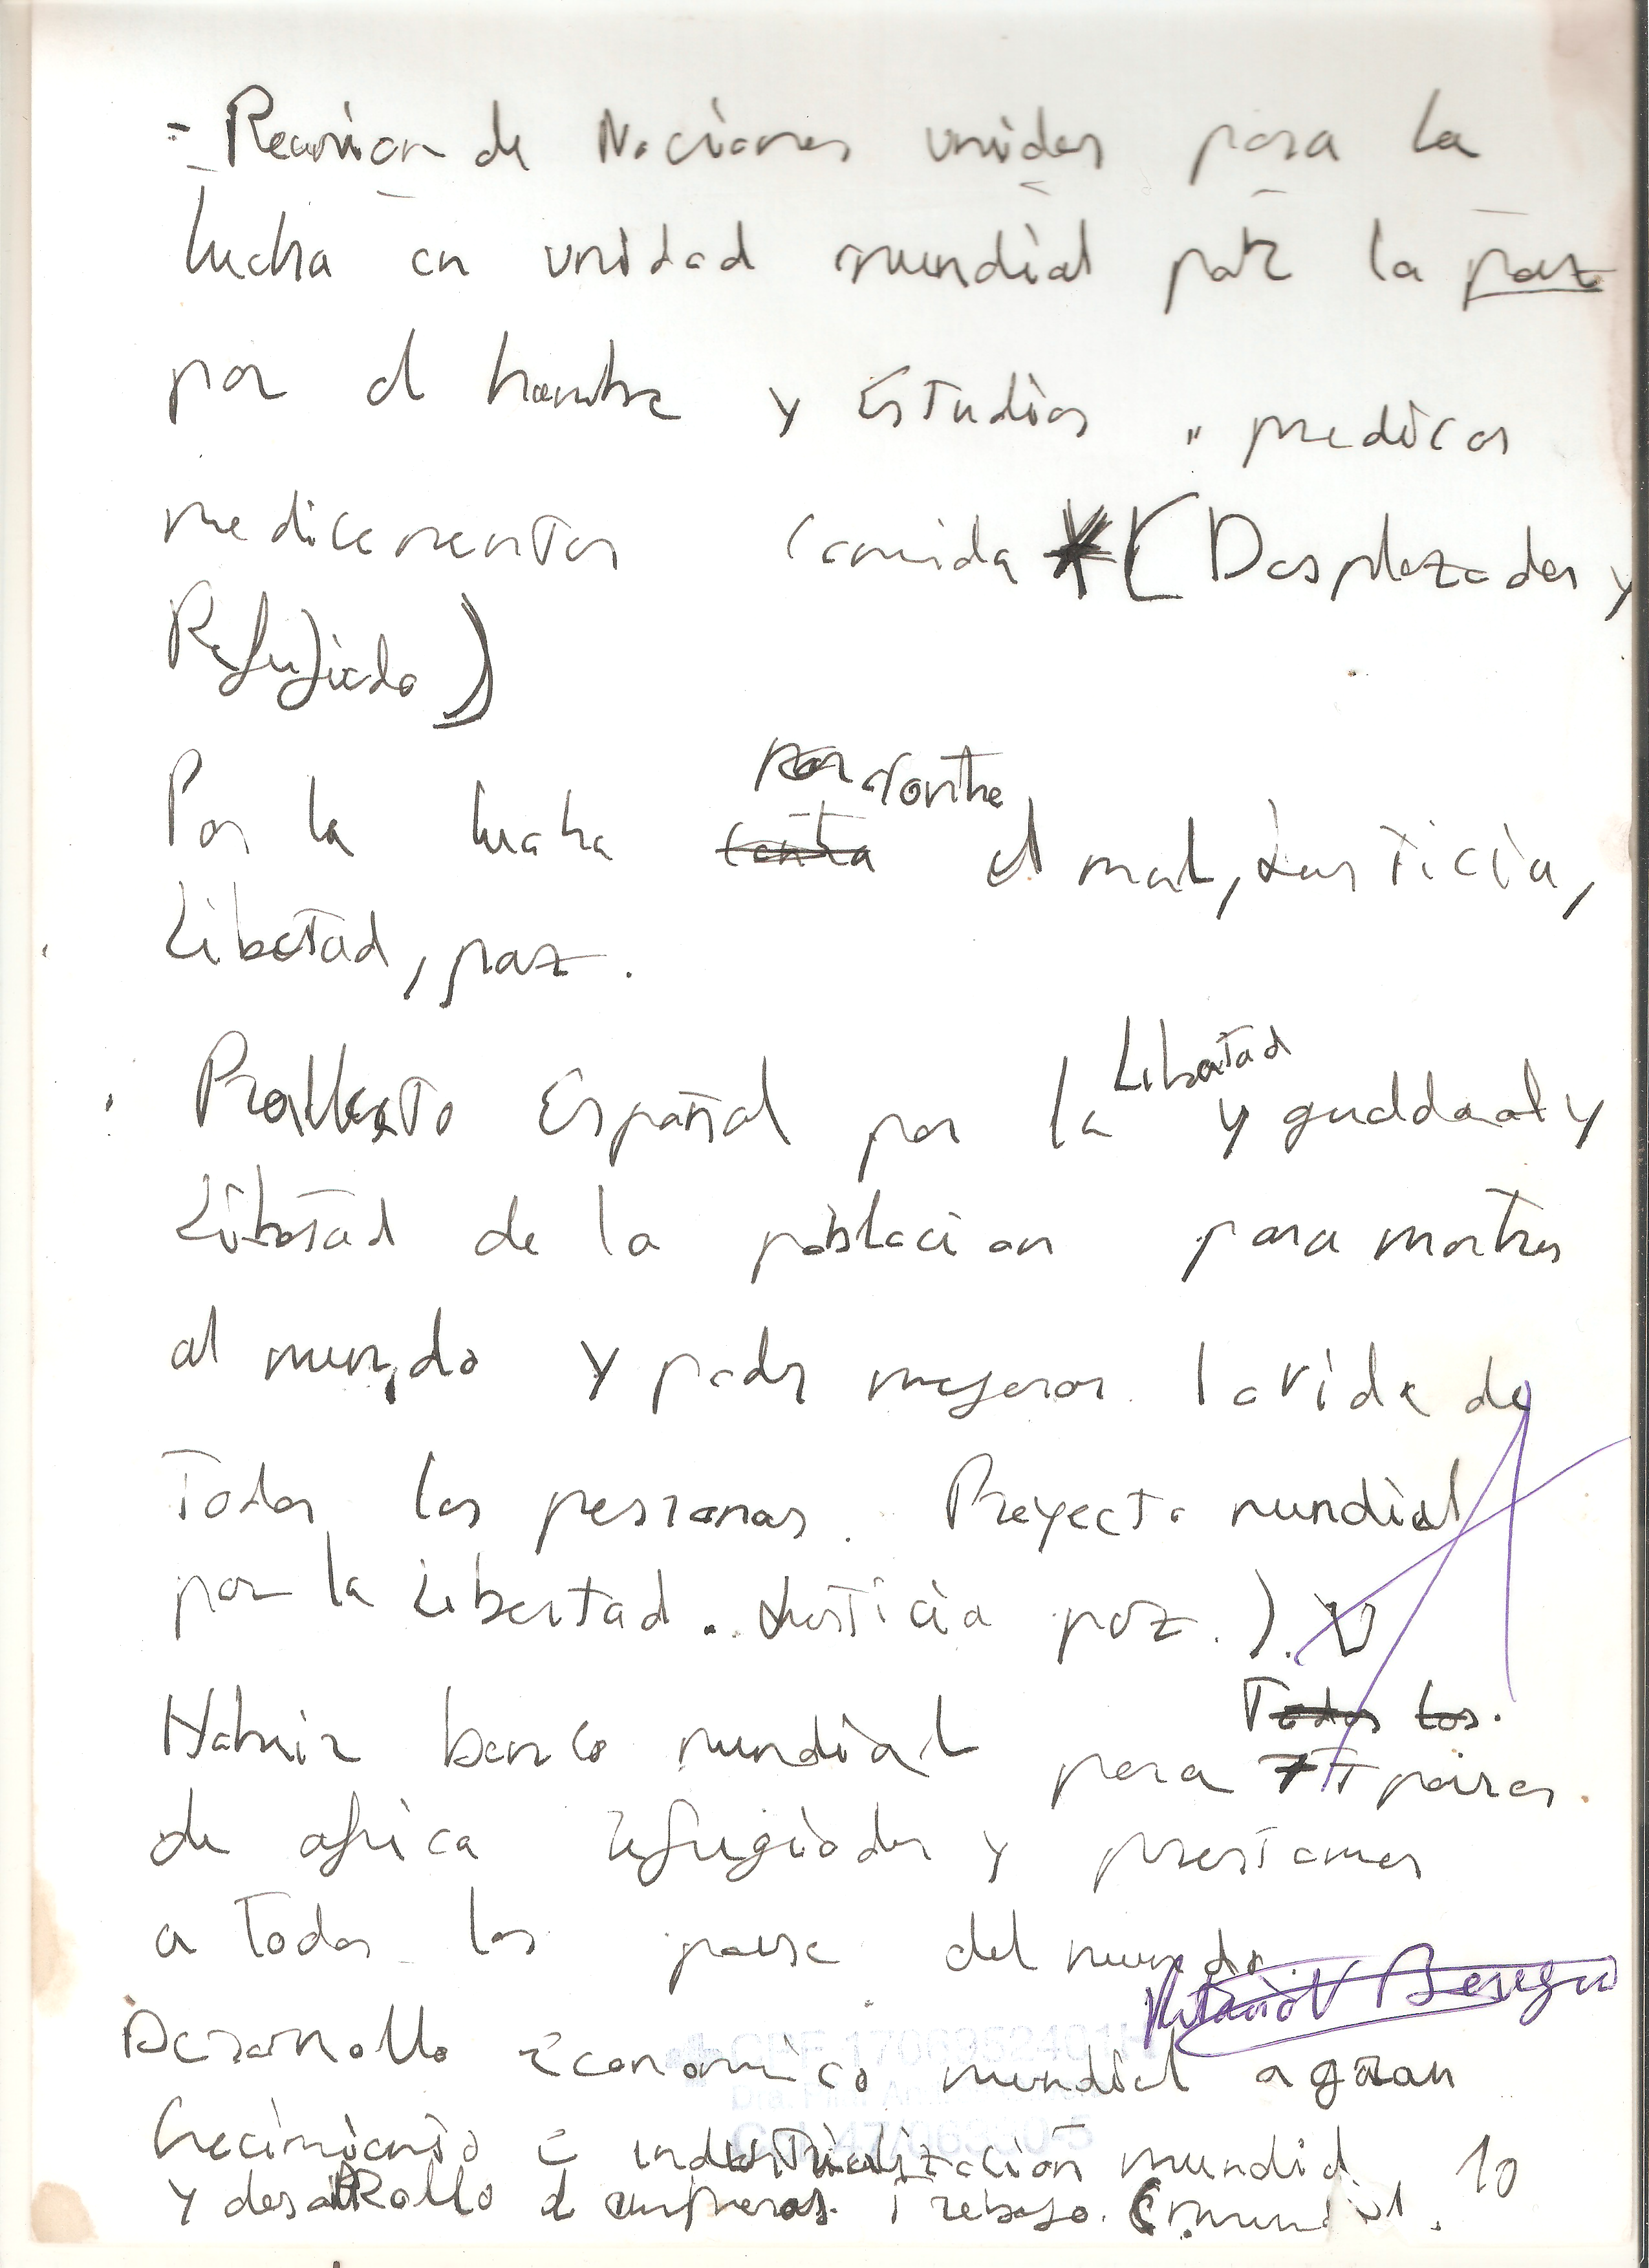 - Reunion de Naciones unidas para la
lucha en unidad mundial por la paz
por el hambre y Estudios, medicos
medicamentos comida * (Desplazados y
Refujiado)
por contra
Por la lucha contra el mal, Justicia,
Libertad, paz.
Libertad
Español por la y y
Libertad de la poblacion para mostrar
al mundo y poder mejorar la vida de
Todas las personas. Proyecto mundial
por la Libertad. Justicia paz.).
Todos los.
banco mundial para paises.
de africa refugiados y prestamos
a Todos los paise del mundo
Desarrollo Economico mundial a gran
Crecimiento e industrialización mundial
y desarrollo d empresas. Trebajo. mundial. 10